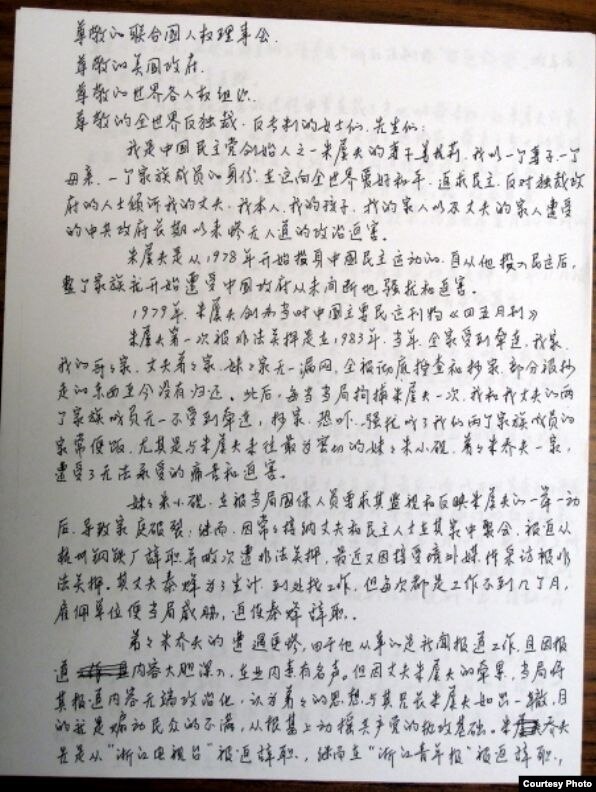 尊敬的联合国人权理事会.
尊敬的美国政府.
尊敬的世界各人权组织.
尊敬的全世界反独裁.反专制的女士们.先生们:
我是中国民主党创始人之一朱虞夫的妻子姜杭莉,我以一个妻子.一个
母亲.一个家族成员的身份,在这向全世界爱好和平.追求民主,反对独裁政
府的人士倾诉我的丈夫.我本人.我的孩子.我的家人以及丈夫的家人遭受
的中共政府长期以来惨无人道的政治迫害。
朱虞夫是从1978年开始投身中国民主运动的.自从他投入民运后,
整个家族就开始遭受中国政府从未间断地骚扰和迫害。
1979年,朱虞夫创办当时中国主要民运刊物《四五月刊》
朱虞夫第一次被非法关押是在1983年.当年,全家受到牵连,我家.
我的哥哥家.丈夫弟弟家.妹妹家无一漏网,全被彻底搜查和抄家.部分被抄
走的东西至今没有归还。此后,每当当局拘捕朱虞夫一次,我和我丈夫的两
个家族成员无一不受到牵连,抄家.恐吓..骚扰成了我们两个家族成员的
家常便饭.尤其是与朱虞夫来往最为密切的妹妹朱小砚.弟弟朱乔夫一家,
遭受了无法承受的痛苦和迫害。
妹妹朱小砚.在被当局国保人员要求其监视和反映朱虞夫的一举一动
后.导致家庭破裂;继而.因常常接纳丈夫和民主人士在其家中聚会.被迫从
杭州钢铁厂辞职并数次遭非法关押,最近又因接受境外媒体采访被非
法关押。其丈夫秦蜂为了生计.到处找工作.但每次都是工作不到几个月,
雇佣单位便当局威胁,迫使秦蜂辞职.。
弟弟朱乔夫的遭遇更惨,由于他从事的是新闻报道工作,且因报
道内容大胆深入,在业内素有名声。但因丈夫朱虞夫的牵累,当局将
其报道内容无端政治化,认为弟弟的思想与其兄长朱虞夫如出一辙,目
的就是煽动民众的不满,从根基上动摇共产党的执政基础。朱乔夫
先是从“浙江电视台”被迫辞职.,继而在“浙江青年报”被迫辞职.,
Courtesy Photo